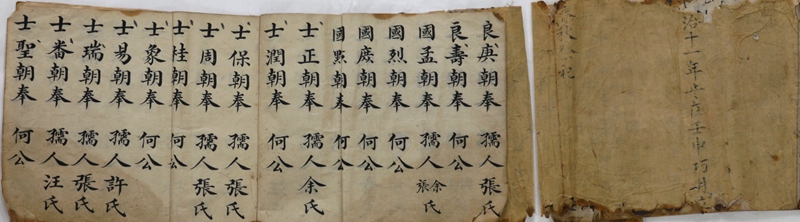 治十一年歲在壬申巧月
良庚朝奉 孺人張氏
良壽朝奉 何公
國孟朝奉 孺人余張氏
國烈朝奉 何公
國庻朝奉 何公
國點朝奉 何公
士正朝奉 孺人余氏
士潤朝奉 何公
士保朝奉 孺人張氏
士周朝奉 孺人張氏
士桂朝奉 何公
士象朝奉 何公
士易朝奉 孺人許氏
士瑞朝奉 孺人張氏
士番朝奉 孺人汪氏
士聖朝奉 何公